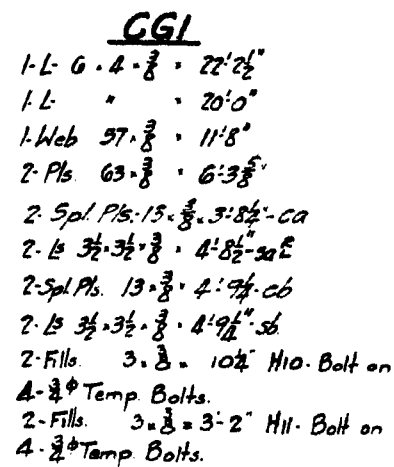 CG1
1-L- 6 × 4 × 3/8 × 22'-2 1/2"
1-L- " × 20'-0"
1-Web 57 × 3/8 × 11'-8"
2-Pls. 63 × 3/8 × 6'-3 5/8"
2-Spl. Pls.-13 × 3/8 × 3'-8 1/4"-ca
2-Ls 3 1/2 × 3 1/2 × 3/8 × 4'-8 1/2"-sa
2-Spl. Pls. 13 × 3/8 × 4'-9 1/4-cb
2-Ls 3 1/2 × 3 1/2 × 3/8 × 4'-9 1/4"-sb.
2-Fills. 3 × 3/8 × 10 1/4" H10-Bolt on
4-3/4ϕ Temp. Bolts.
2-Fills. 3 × 3/8 × 3'-2" H11-Bolt on
4-3/4ϕ Temp. Bolts.